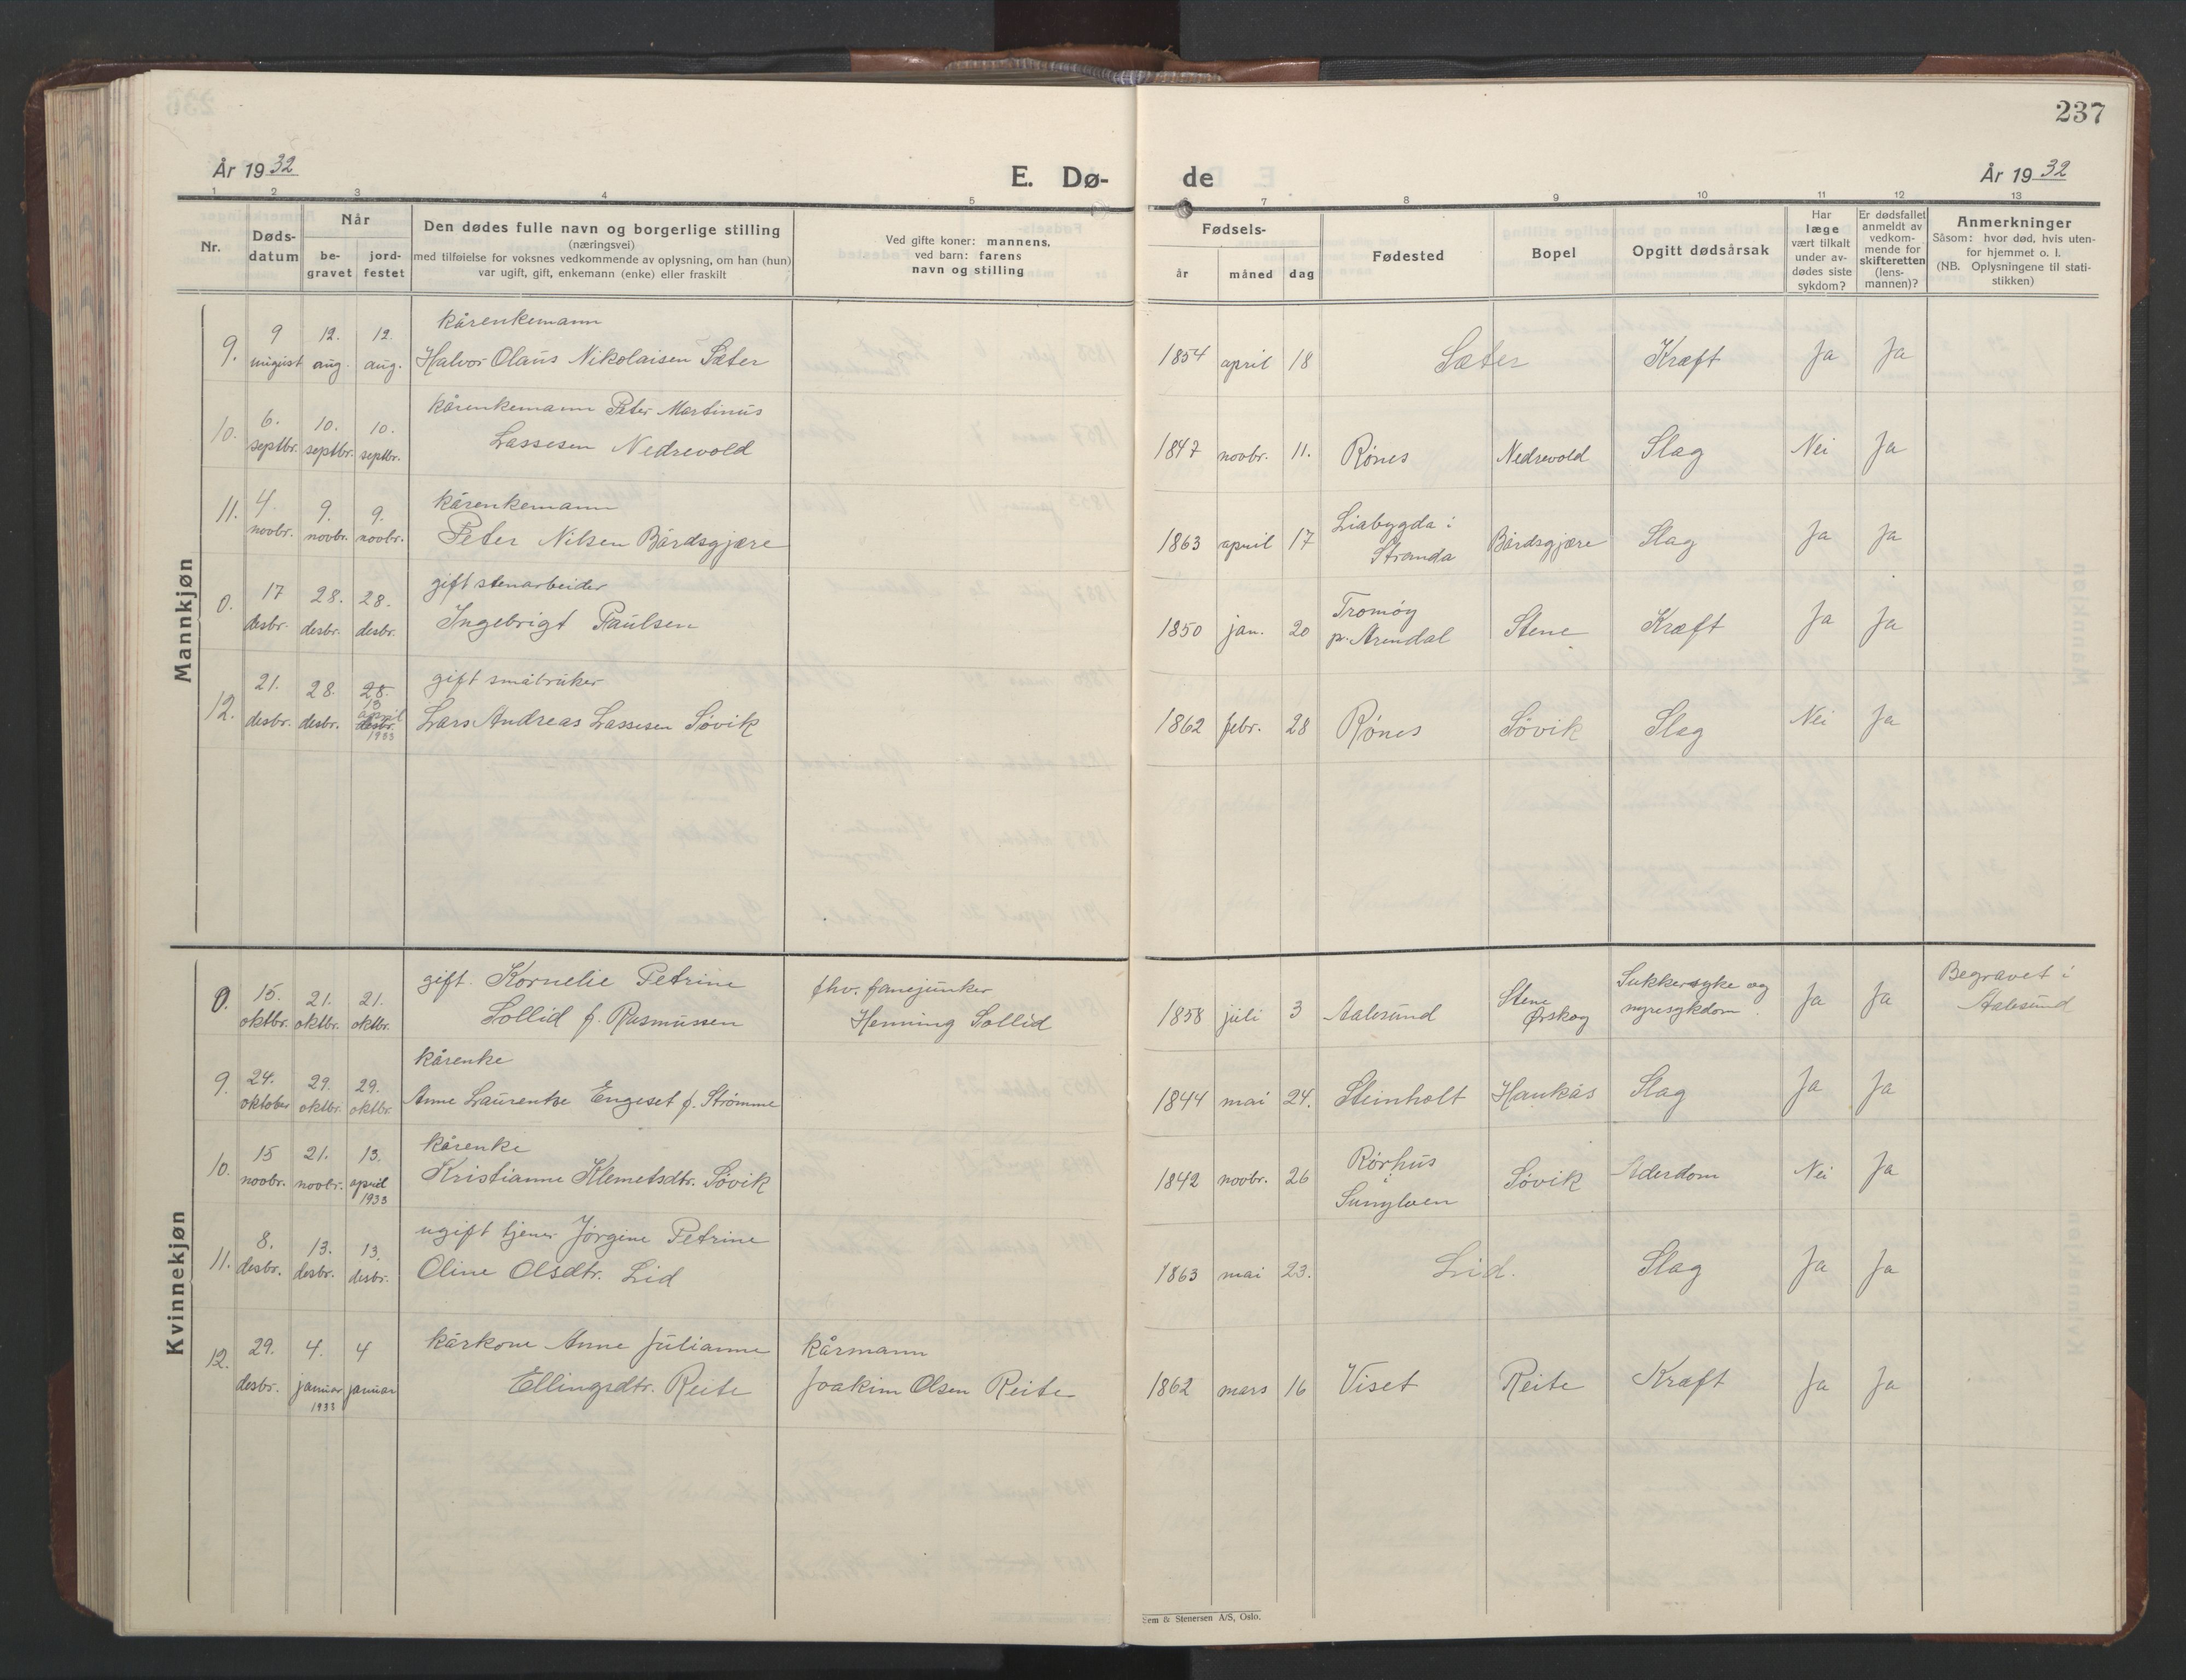 237
År 1932
E. Dø-
de
År 1932
1 2 3 4 5 7 8 9 10 11 12 13
Nr.
Døds-
datum
Når
be-
gravet
jord-
festet
Den dødes fulle navn og borgerlige stilling
(næringsvei)
med tilføielse for voksnes vedkommende av oplysning, om han (hun)
var ugift, gift, enkemann (enke) eller fraskilt
Ved gifte koner: mannens,
ved barn: farens
navn og stilling
Fødsels-
år måned dag
Fødested
Bopel
Opgitt dødsårsak
Har
læge
vært tilkalt
under av-
dødes siste
sykdom?
Er dødsfallet
anmeldt av
vedkom-
mende for
skifteretten
(lens-
mannen)?
Anmerkninger
Såsom: hvor død, hvis uten-
for hjemmet o. l.
(NB. Oplysningene til stati-
stikken)
Mannkjøn
kårenkemann
9. 9 12. 12.
august aug. aug. Halvor Olaus Nikolaisen Sæter 1854 april 18 Sæter Kræft Ja Ja
kårenkemann Peter Martinus
10. 6. 10. 10.
septbr. septbr. septbr. Lassesen Nedrevold 1847 novbr. 11. Rønes Nedrevold Slag Nei Ja
kårenkemann
11. 4. 9. 9. Liabygda i
novbr. novbr. novbr. Peter Nilsen Bårdsgjære 1863 april 17 Stranda Bårdsgjære Slag Ja Ja
gift stenarbeider
0. 17 28. 28. Tromøy
desbr. desbr. desbr. Ingebrigt Paulsen 1850 jan. 20 p. Arendal Stene Kræft Ja Ja
gift småbruker
12. 21. 28. 28.
13
april
desbr. desbr. desbr. Lars Andreas Lassesen Søvik 1862 febr. 28 Rønes Søvik Slag Nei Ja
1933
Kvinnekjøn
gift. Kornelie Petrine fhv. fanejunker Stene Sukkersyke og Begravet i
0. 15. 21. 21.
oktbr. oktbr. oktbr. Sollid f. Rasmussen Henning Sollid 1858 juli 3 Aalesund Ørskog nyresykdom. Ja Ja Aalesund
kårenke
9. 24. 29. 29.
oktober oktbr. oktbr. Anne Laurentse Engeset f. Strømme 1844 mai 24. Steinholt Haukås Slag Ja Ja
kårenke
10. 15 21. 13. Rørhus
i
novbr. novbr. april Kristianne Klemetsdtr. Søvik 1842 novbr. 26 Sunylven Søvik Alderdom Nei Ja
1933
ugift tjener Jørgine Petrine
11. 8. 13. 13.
desbr. desbr. desbr. Oline Olsdtr. Lid 1863 mai 23. Lid. Slag Ja Ja
kårkone Anne Julianne kårmann
12. 29. 4. 4
desbr. januar januar Ellingsdtr. Reite Joakim Olsen Reite 1862 mars 16 Viset Reite Kræft Ja Ja
1933
Sem & Stenersen A/S, Oslo.